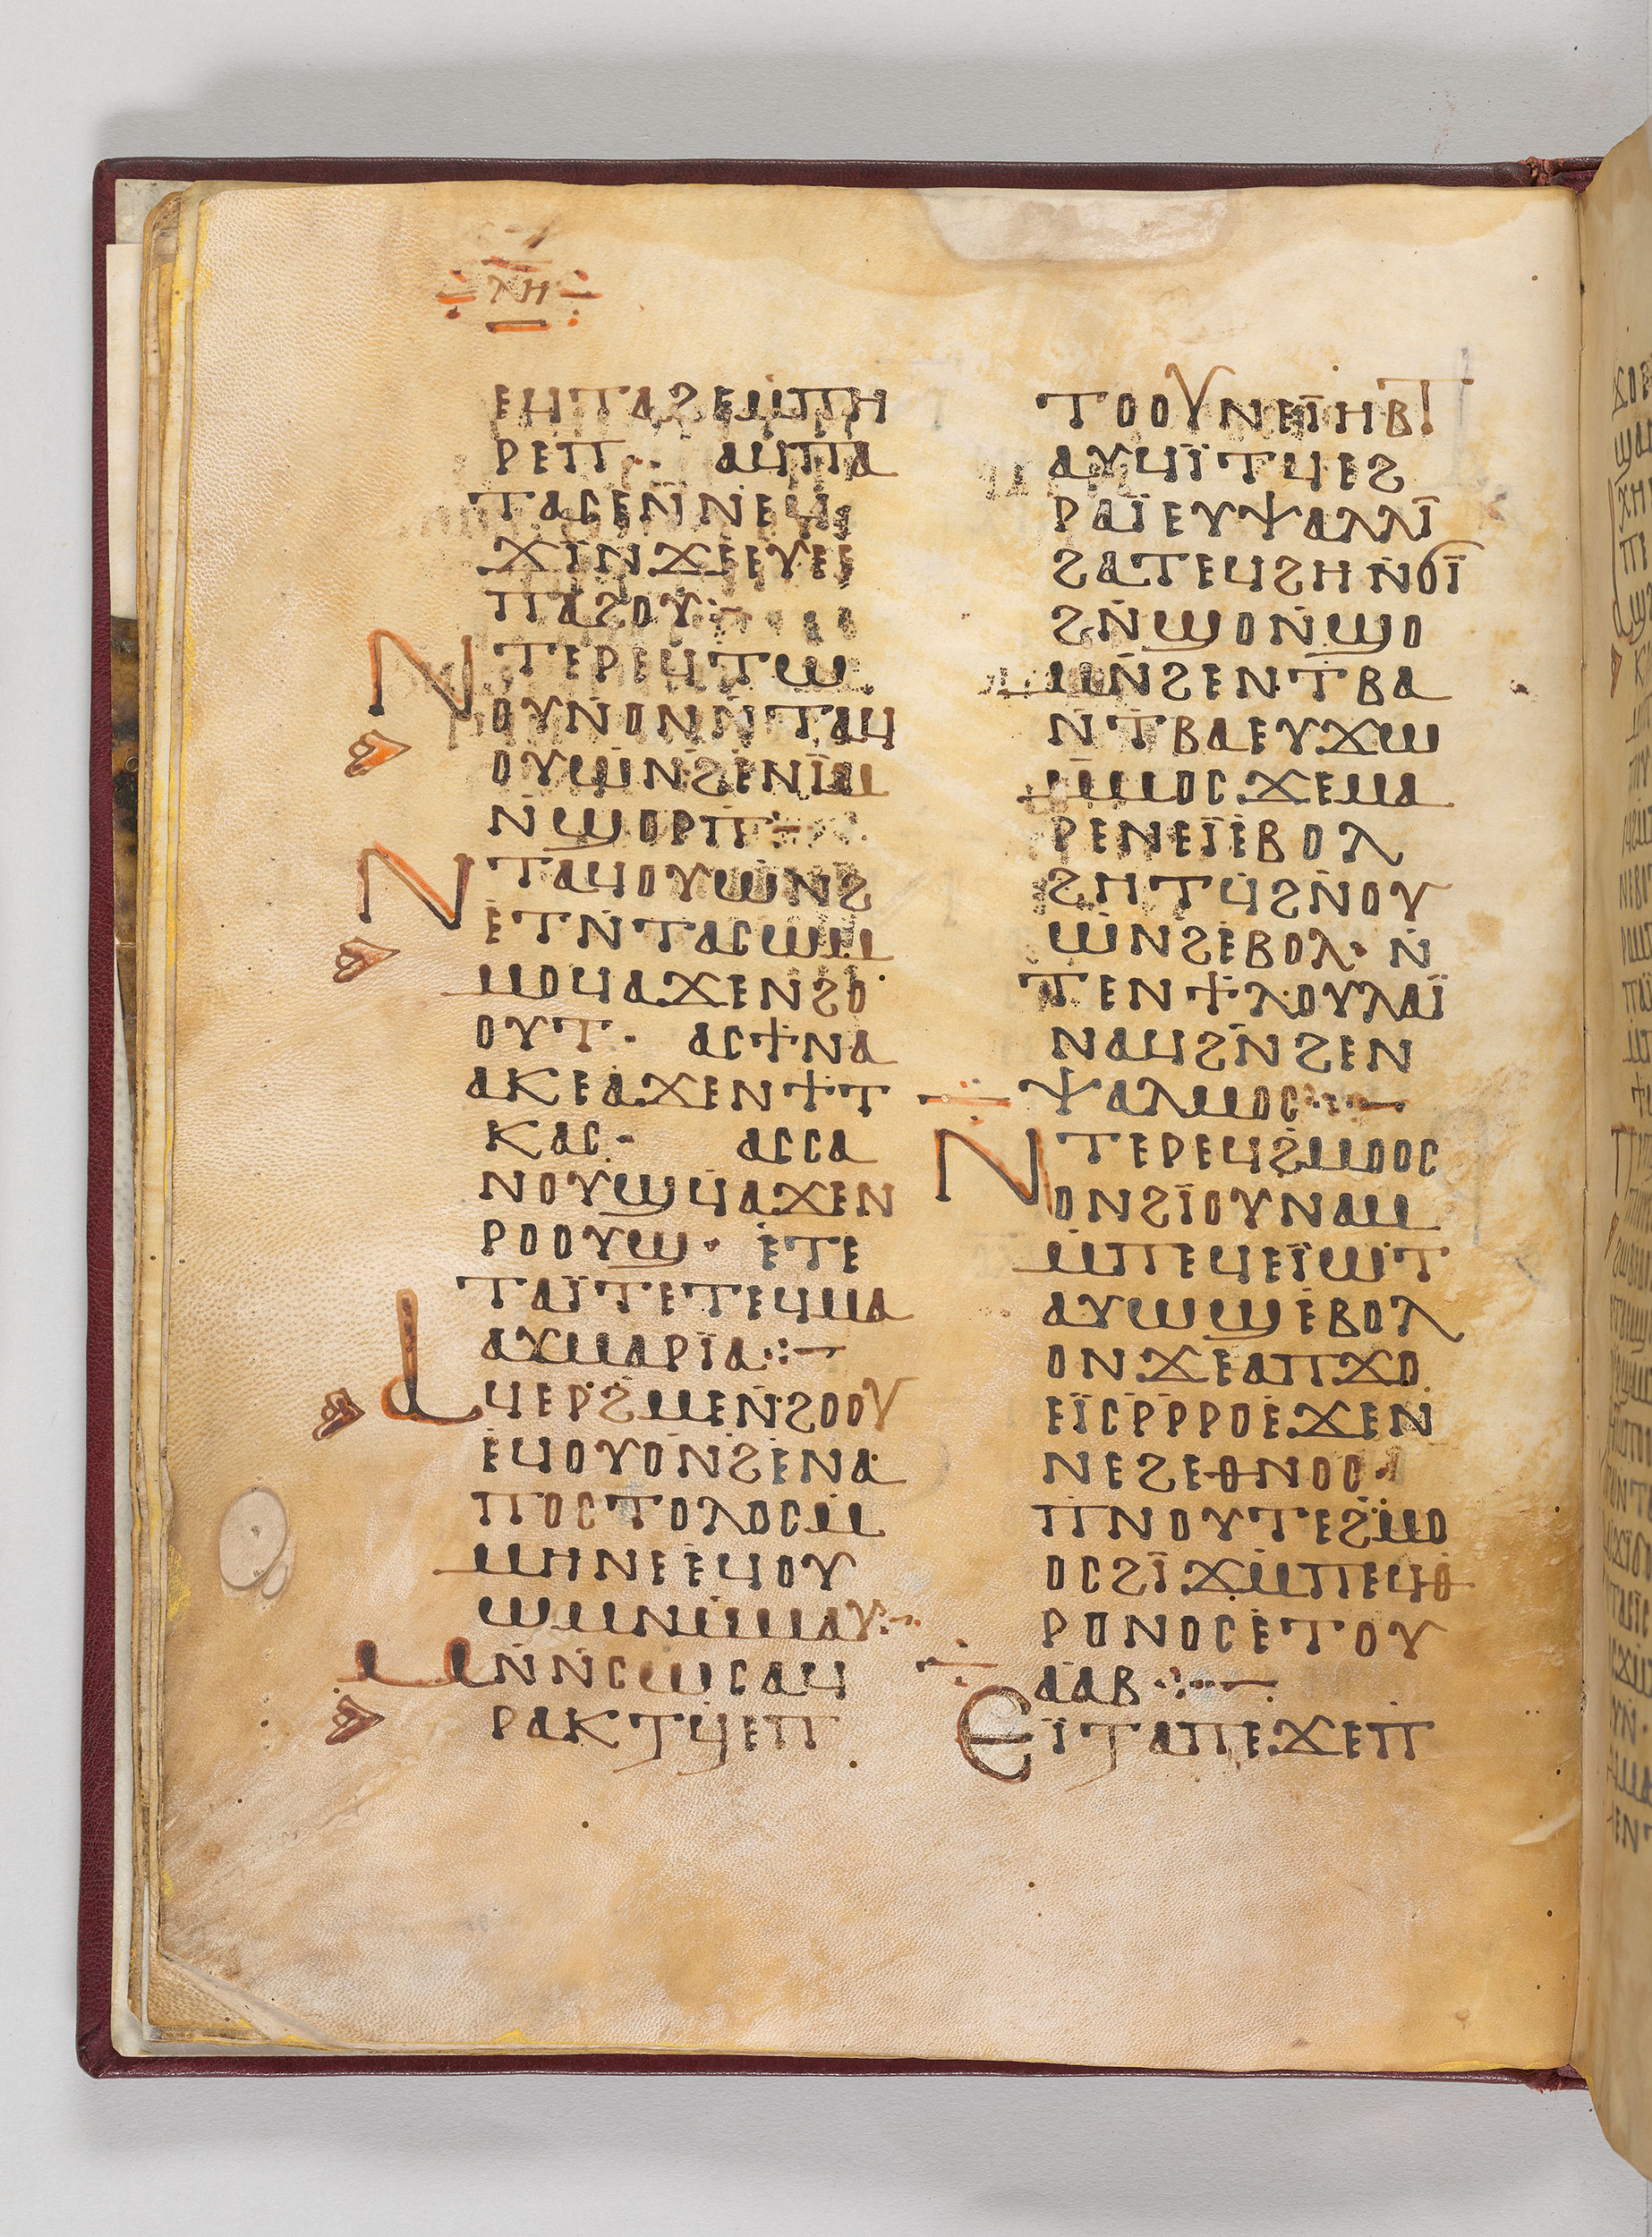 ⲛⲏ
ⲉϥⲧⲁϩⲉⲙⲡⲏ
ⲣⲉⲡ· ⲁϥⲡⲁ
ⲧⲁⲥⲉⲛⲛⲉϥ
ϫⲓⲛϫⲉⲉⲩⲉⲓ
ⲡⲁϩⲟⲩ:–
ⲛⲧⲉⲣⲉϥⲧⲱ
ⲟⲩⲛⲟⲛⲛⲧⲁϥ
ⲟⲩⲱⲛϩⲉⲛⲓⲙ
ⲛϣⲟⲣⲡ:–
ⲛⲧⲁϥⲟⲩⲱⲛϩ
ⲉⲧⲛⲧⲁⲥⲱⲙ
ⲙⲟϥⲁϫⲉⲛϩⲟ
ⲟⲩⲧ· ⲁⲥϯⲛⲁ
ⲁⲕⲉⲁϫⲉⲛϯⲧ
ⲕⲁⲥ· ⲁⲥⲥⲁ
ⲛⲟⲩϣϥⲁϫⲉⲛ
ⲣⲟⲟⲩϣ· ⲉⲧⲉ
ⲧⲁⲓⲧⲉⲧⲉϥⲙⲁ
ⲁⲩⲙⲁⲣⲓⲁ:–
ⲁϥⲉⲣϩⲙⲉⲛϩⲟⲟⲩ
ⲉϥⲟⲩⲟⲛϩⲉⲛⲁ
ⲡⲟⲥⲧⲟⲗⲟⲥⲙ
ⲙⲏⲛⲉⲉϥⲟⲩ
ⲱⲙⲛⲙⲙⲁⲩ:–
ⲙⲛⲛⲥⲱⲥⲁϥ
ⲣⲁⲕⲧϥⲉⲡ
ⲧⲟⲟⲩⲛⲉⲓⲏⲃⲧ
ⲁⲩϥⲓⲧϥⲉϩ
ⲣⲁⲓⲉⲩⲯⲁⲗⲗⲓ
ϩⲁⲧⲉϥϩⲏⲛϭⲓ
ϩⲛϣⲟⲛϣⲟ
ⲙⲛϩⲉⲛⲧⲃⲁ
ⲛⲧⲃⲁⲉⲩϫⲱ
ⲙⲙⲟⲥϫⲉⲙⲁ
ⲣⲉⲛⲉⲓⲉⲃⲟⲗ
ϩⲏⲧϥϩⲛⲟⲩ
ⲱⲛϩⲉⲃⲟⲗ· ⲛ
ⲧⲉⲛϯⲗⲟⲩⲗⲁⲓ
ⲛⲁϥϩⲛϩⲉⲛ
ⲯⲁⲗⲙⲟⲥ:–
ⲛⲧⲉⲣⲉϥϩⲙⲟⲟⲥ
ⲟⲛϩⲓⲟⲩⲛⲁⲙ
ⲙⲡⲉϥⲉⲓⲱⲧ
ⲁⲩⲱϣⲉⲃⲟⲗ
ⲟⲛϫⲉⲁⲡϫⲟ
ⲉⲓⲥⲣⲣⲣⲟⲉϫⲉⲛ
ⲛⲉϩⲉⲑⲛⲟⲥ·
ⲡⲛⲟⲩⲧⲉϩⲙⲟ
ⲟⲥϩⲓϫⲙⲡⲉϥⲑ
ⲣⲟⲛⲟⲥⲉⲧⲟⲩ
ⲁⲁⲃ:–
ⲉⲓⲧⲁⲡⲉϫⲉⲡ